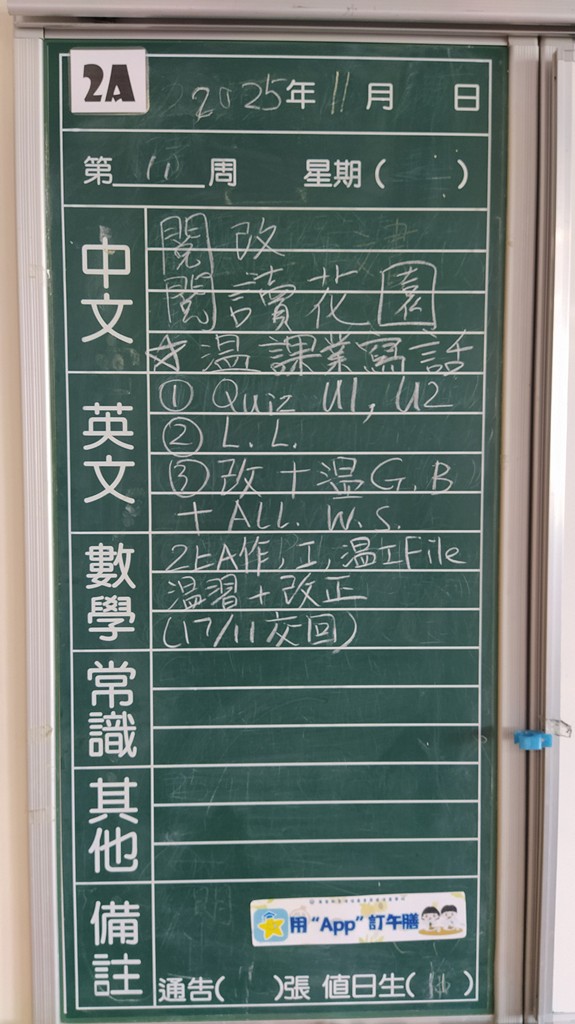 2A
2025年11月 日
第 11 周 星期( )
中文
閱改
閱讀花園
☆温課業寫話
英文
① Quiz U1, U2
② L.L.
③ 改+温G.B
+ ALL. W.S.
數學
2EA作,工,温工File
温習+改正
(17/11交回)
常識
其他
備註
用“App”訂午膳
通告( )張 值日生( )